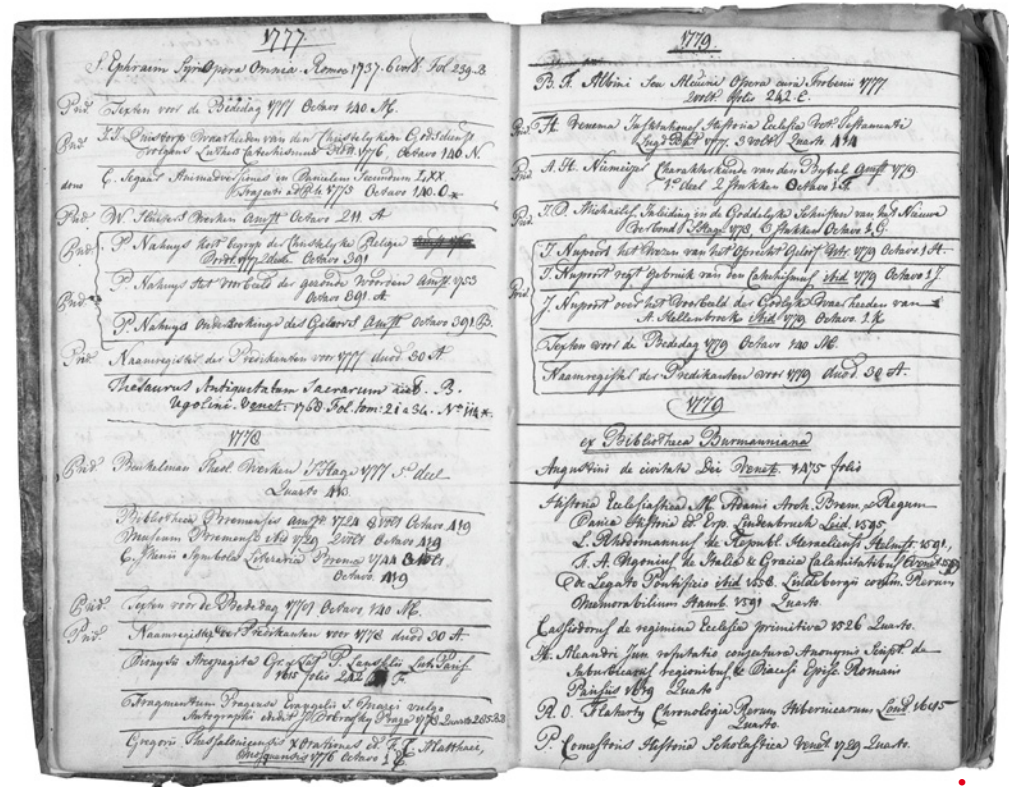 1777
S. Ephraim Syri Opera Omnia. Romæ 1737. 6 voll. Fol 239. B.
Pred. Texten voor de Bededag 1777 Octavo 140 M.
Pred. J.J. Quistorp Waarheden van den Christelyken Godsdienst
volgens Luthers Catechismus 1776, Octavo 140 N.
dono C. Segaar Animadversiones in Danielem Secundum LXX
Trajecti 1775 Octavo 140. O
Pred. W. Sluiters Werken Amst. Octavo 211. A
Pred. P. Nahuys Kort begrip der Christelyke Religie
Dordt. 1772 Octavo 391
P. Nahuys Het voorbeeld der gezonde Woorden Amst. 1755
Pred. Octavo 391. A.
P. Nahuys onderzoekinge des Geloovs Amst. Octavo 391. B.
Pred. Naamregister der Predikanten voor 1777 duod. 30 A
Thesaurus Antiquitatum Sacrarum B.
Ugolini. Venet. 1768. Fol. tom: 21 a 34. No 114*.
1778
Pred. Theol. Werken 'S Hage 1777. 5e deel
Quarto 410.
Bibliotheca Bremensis Amst. 1724 8 voll Octavo 419
Museum Bremense ibid 1729 2 voll Octavo 419
C. Ikenii Symbola Literaria Bremæ 1744 3 voll
Octavo. 419
Pred. Texten voor de Bededag Octavo 140 M.
Pred. Naamregister der Predikanten voor 1778 duod 30 A.
Dionysii Areopagitæ Gr. & Lat. P. Lansselii Lut. Paris.
1615 folio 242 F.
Fragmentum Pragense Evangelii S. Marci vulgo
Autographi edidit J. Dobrofsky Pragæ 1778 Quarto
Gregorii Thessalonicensis X Orationes ed. C. F. Matthæi,
1776 Octavo
1779.
B. F. Albini Seu Alcuini Opera cura Frobenii 1777
2 voll. folio 242. E.
Pred. H. Venema Institutiones Historiæ Ecclesiæ Vet. Testamenti
Lugd. Bat. 1777. 3 voll. Quarto 414
Pred A. H. Niemeijer Charakterkunde van den Bybel Amst. 1779
1e deel 2 stukken Octavo 1. F.
Pred. J. D. Michaelis Inleiding in de Goddelyke Schriften van het Nieuwe
Verbond 'S Hage 1778. 6 stukken Octavo 1. G.
J. Nupoort het Wezen van het Oprecht Geloof Utr. 1779 Octavo 1 H.
J. Nupoort regt Gebruik van den Catechismus ibid 1779 Octavo 1 J.
Pred. J. Nupoort over het Voorbeeld der Godlyke Waarheeden van
A. Hellenbroek ibid 1779 Octavo 1. K
Texten voor de Bededag 1779 Octavo 140 M.
Naamregister der Predikanten voor 1779 duod. 30 A.
1779
ex Bibliotheca Burmanniana
Augustinus de civitate Dei Venet. 1475 folio
Historia Ecclesiastica M. Adami Arch. Brem. & Regum
Daniæ Historia ed. Erp. Lindenbruch Leid. 1595.
L. Rhodomannus de Republ. Heracliensi Helmst. 1591,
H. A. de Italiæ & Græciæ Calamitatibus
Ex Legato Pontificio ibid 1558. Lindebergii comm. Rerum
Memorabilium Hamb. 1591 Quarto.
Cassiodorus de regimine Ecclesiæ primitivæ 1526 Quarto.
H. Aleandri Jun refutatio conjecturæ Anonymi Script. de
Suburbicariis regionibus & Diæcesi Episc. Romani
Parisiis 1619 Quarto
R. O. Flaherty Chronologia Rerum Hibernicarum Lond.
Quarto.
P. Comestoris Historia Scholastica Venet 1729 Quarto.